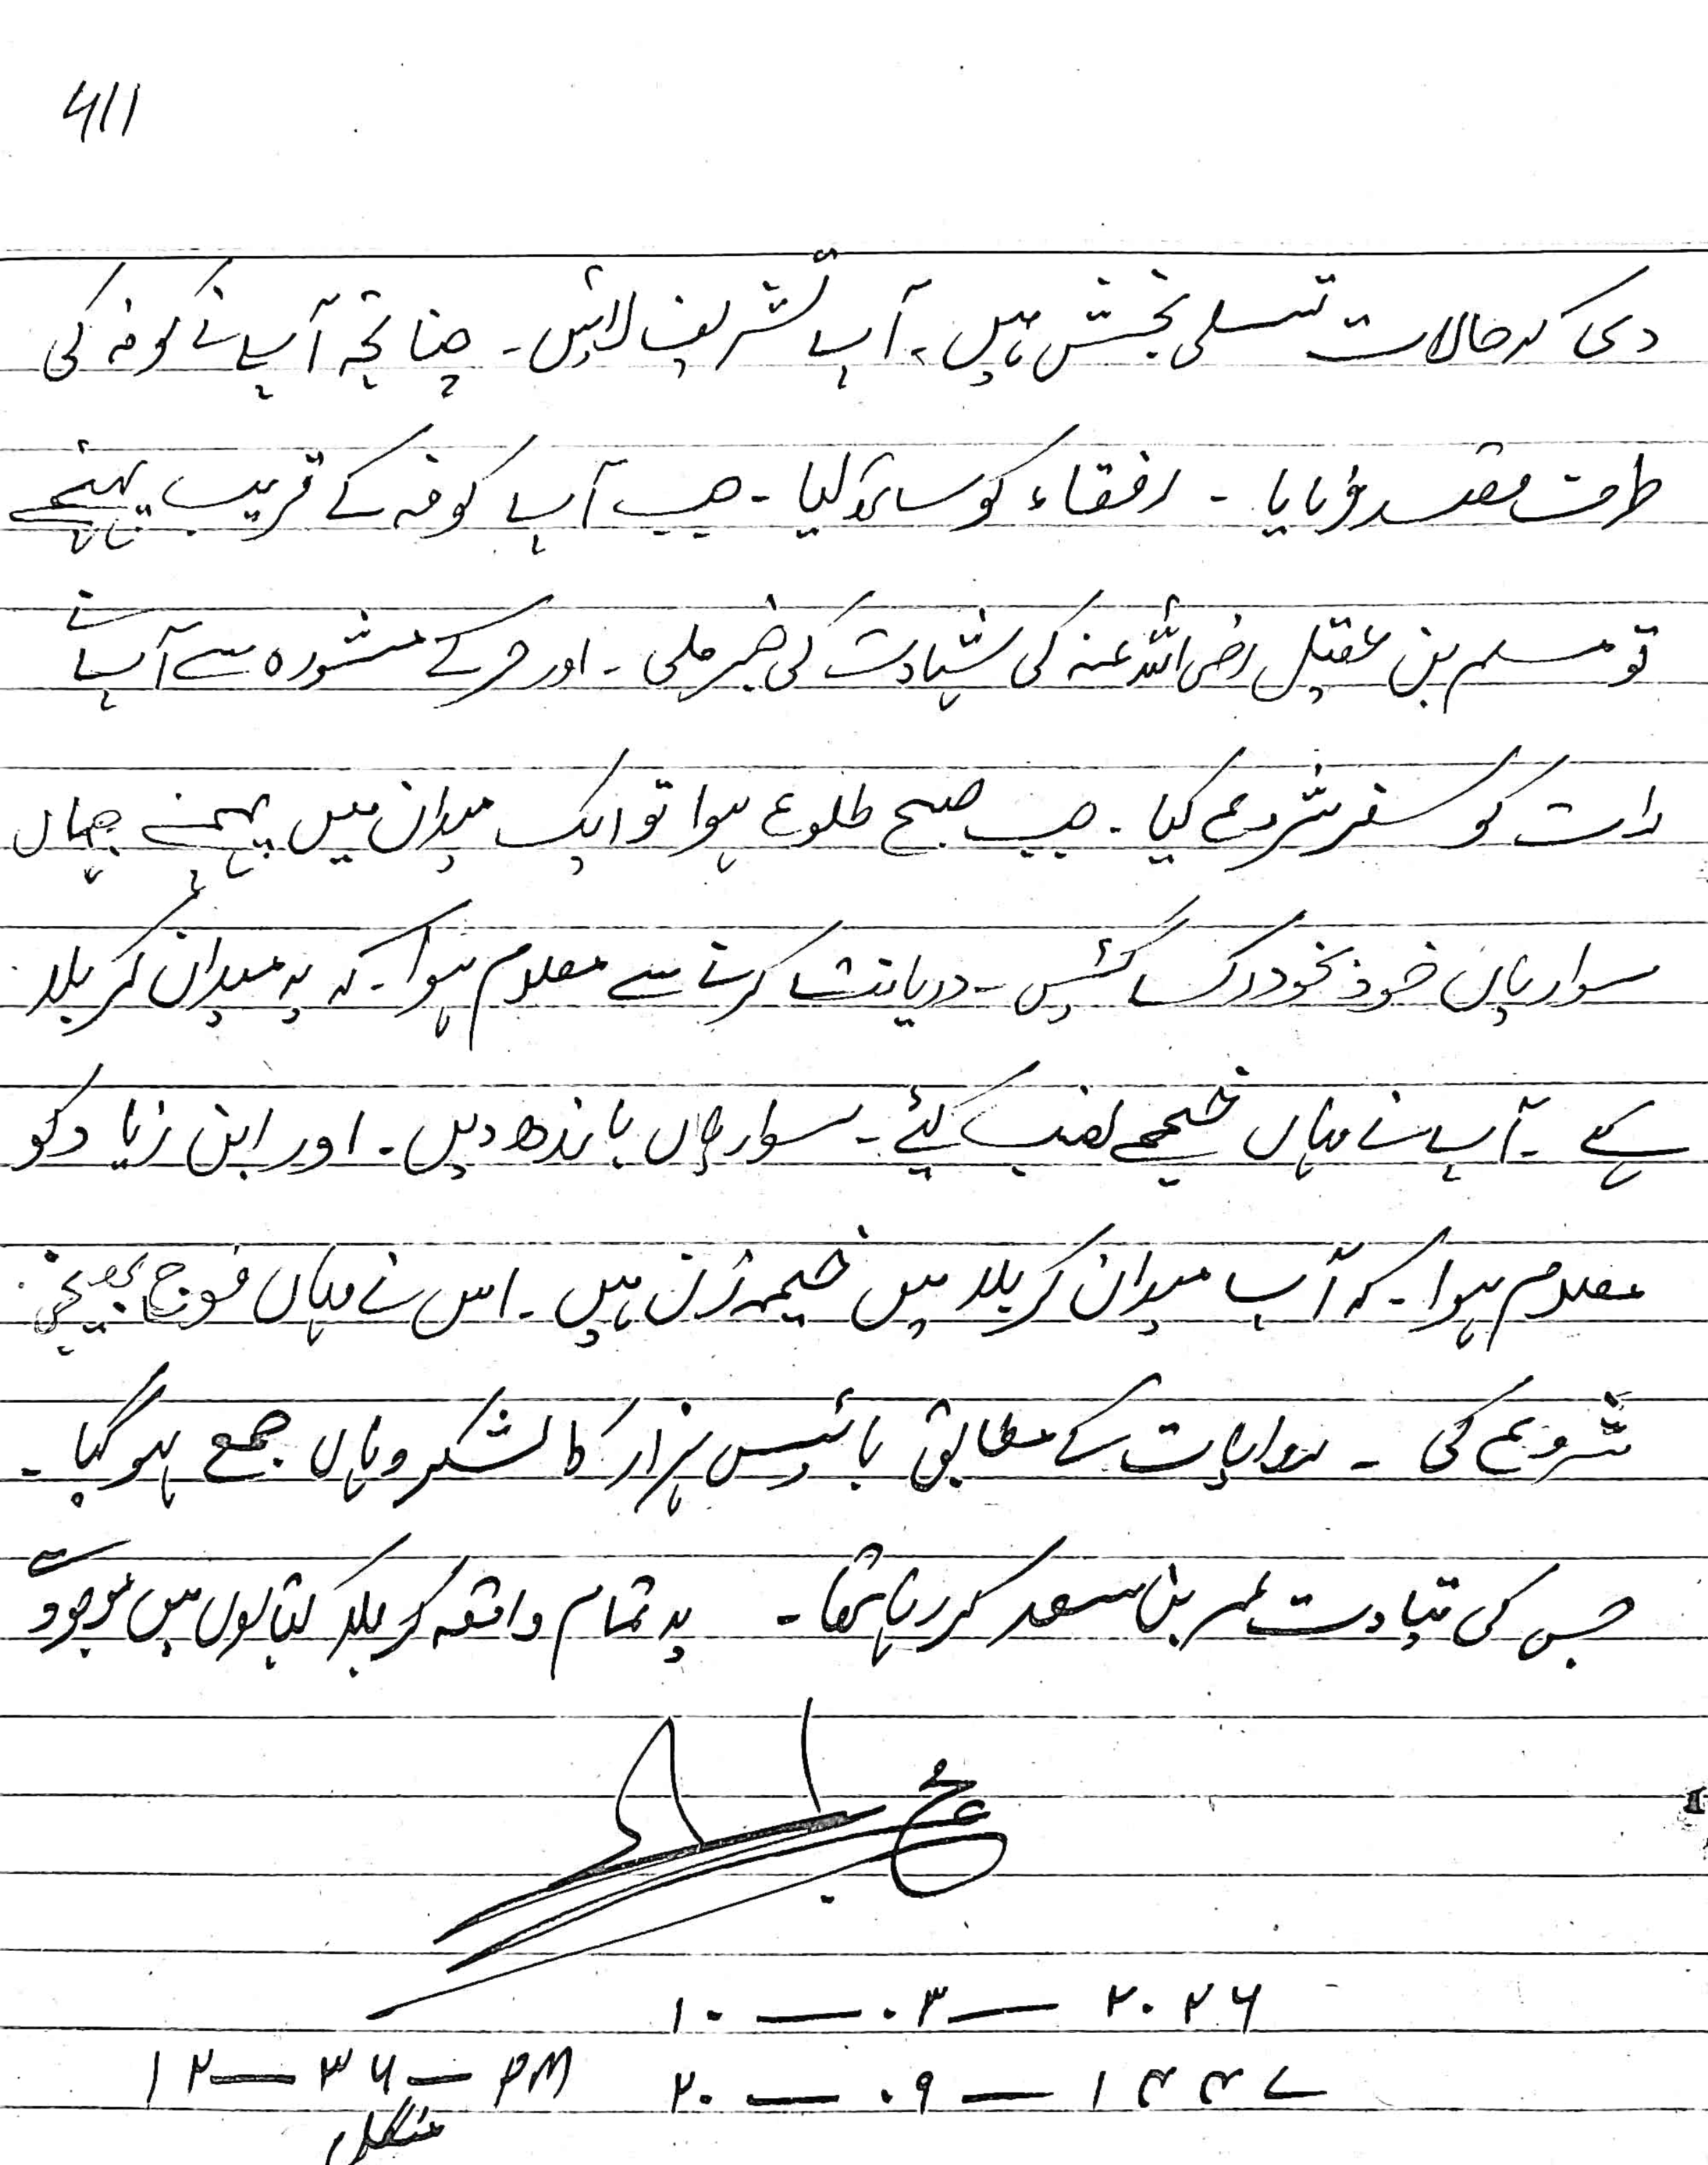 611
دی کہ حالات تسلی بخش ہیں۔ آپ تشریف لائیں۔ چنانچہ آپ نے کوفہ کی
طرف قصد فرمایا۔ رفقاء کو ساتھ لیا۔ جب آپ کوفہ کے قریب پہنچے
تو مسلم بن عقیل رضی اللہ عنہ کی شہادت کی خبر ملی۔ اور حر کے مشورہ سے آپ نے
رات کو سفر شروع کیا۔ جب صبح طلوع ہوا تو ایک میدان میں پہنچے جہاں
سواریاں خود بخود رک گئیں۔ دریافت کرنے سے معلوم ہوا۔ کہ یہ میدان کربلا
ہے۔ آپ نے وہاں خیمے نصب کیئے۔ سواریاں باندھ دیں۔ اور ابن زیاد کو
معلوم ہوا۔ کہ آپ میدان کربلا میں خیمہ زن ہیں۔ اس نے وہاں فوج بھیجنی
شروع کی۔ روایات کے مطابق بائیس ہزار کا لشکر وہاں جمع ہو گیا۔
جس کی قیادت عمر بن سعد کر رہا تھا۔ یہ تمام واقعہ کربلا کتابوں میں موجود ہے
۱۰ — ۰۳ — ۲۰۲۶
۱۲ — ۳۶ — PM ۲۰ — ۰۹ — ۱۴۴۷
منگل